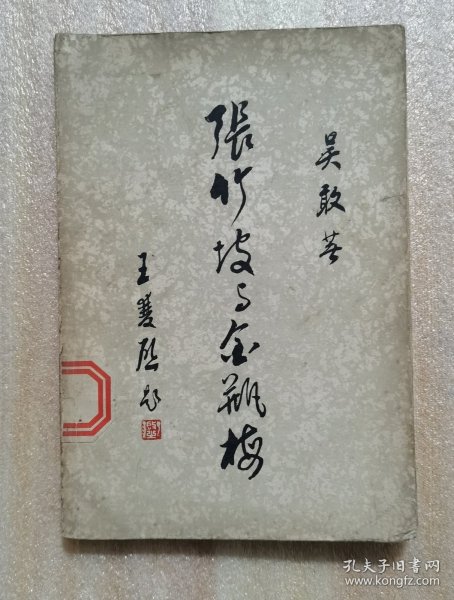 吴敢著
張竹坡与金瓶梅
王双启题
孔夫子旧书网
www.kongfz.com